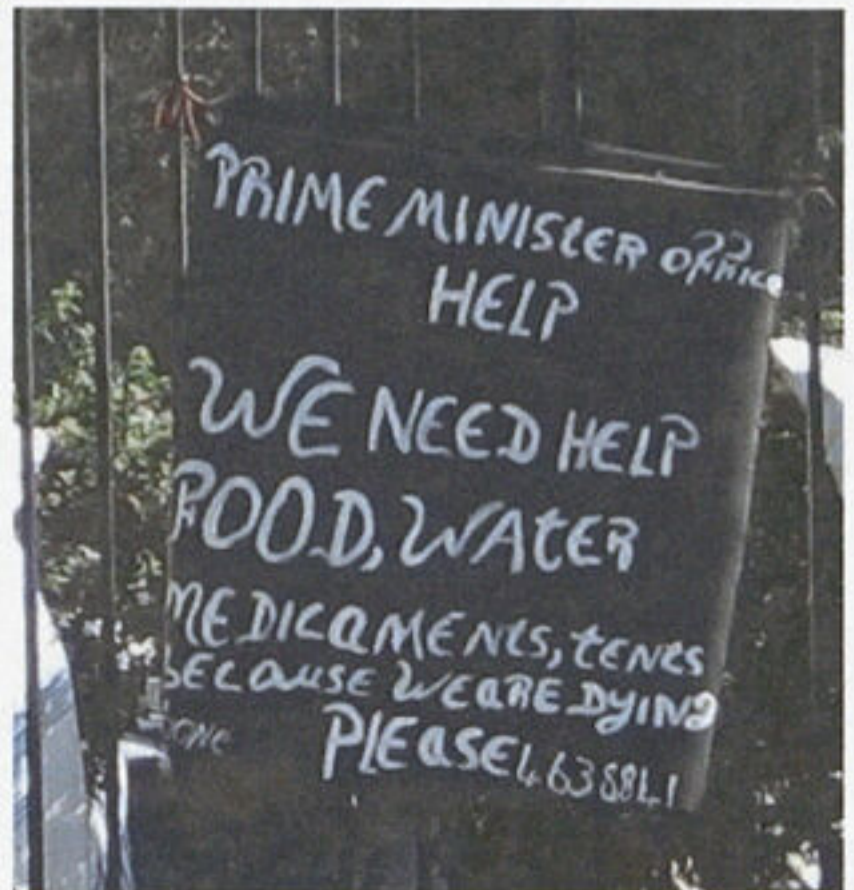 PRIME MINISTER OFFICE
HELP
WE NEED HELP
FOOD, WATER
MEDICAMENTS, TENTS
BECAUSE WE ARE DYING
PLEASE 4638841